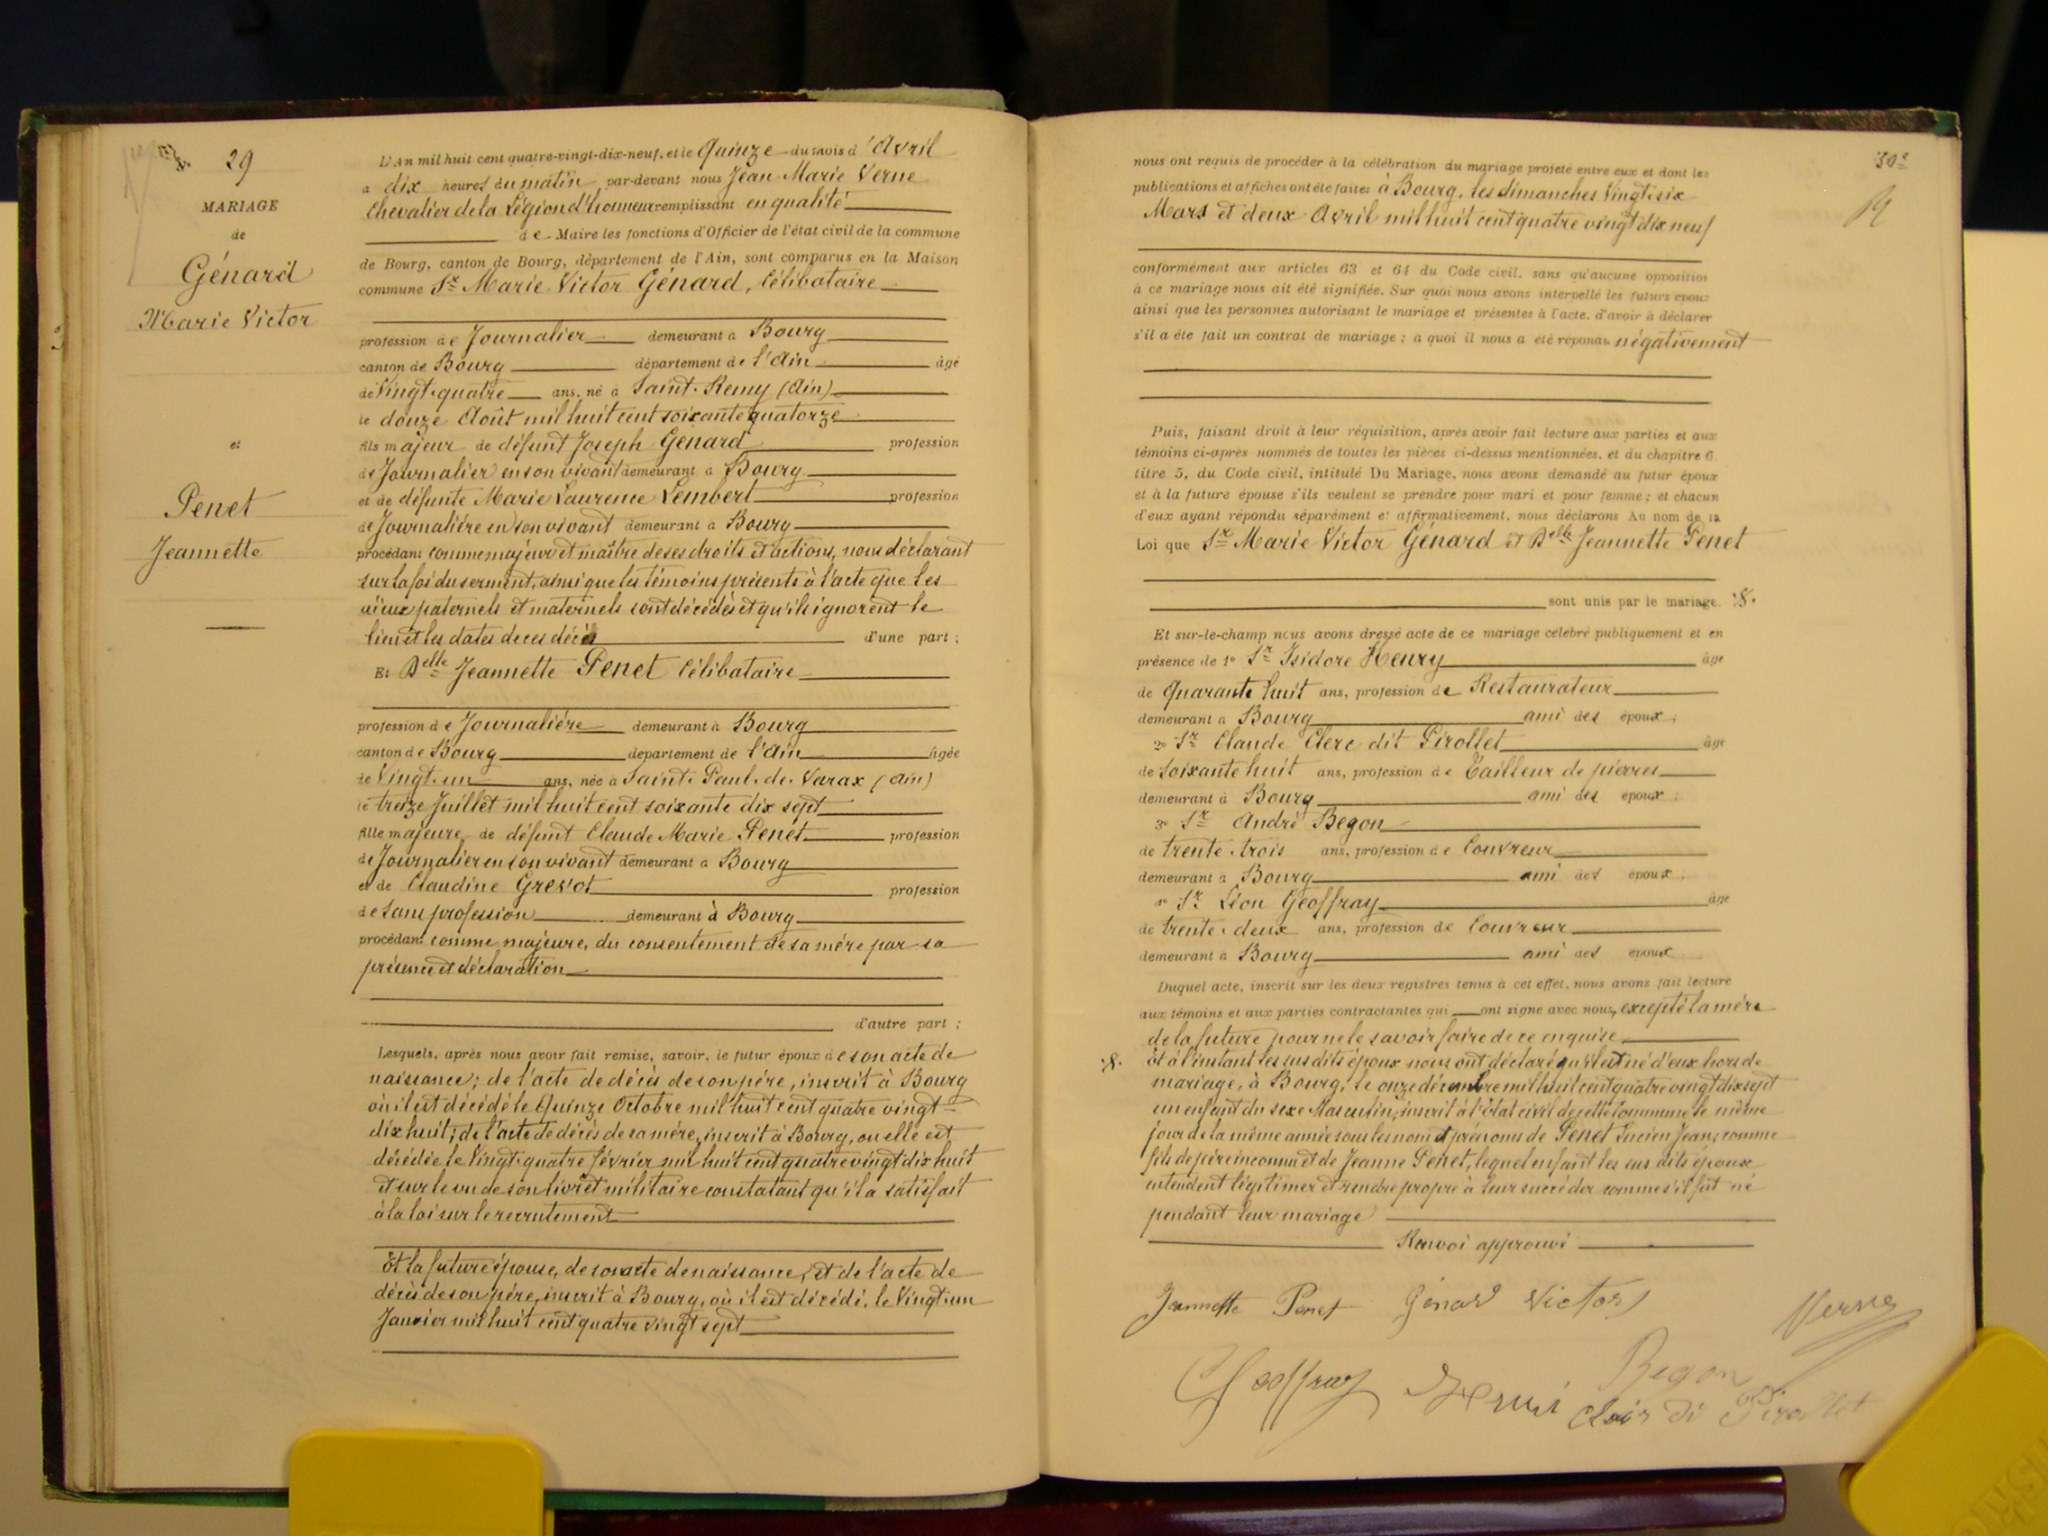 29
MARIAGE
de
Génard
Marie Victor
et
Penet
Jeannette
L'An mil huit cent quatre-vingt-dix-neuf, et le Quinze du mois d'Avril
à dix heures du matin par-devant nous Jean Marie Verne
Chevalier de la Légion d'honneur remplissant en qualité
de Maire les fonctions d'Officier de l'état civil de la commune
de Bourg, canton de Bourg, département de l'Ain, sont comparus en la Maison
commune Sr Marie Victor Génard, Célibataire
profession de Journalier demeurant à Bourg
canton de Bourg département de l'Ain âgé
de Vingt-quatre ans, né à Saint-Remy (Ain)
le douze Août mil huit cent soixante quatorze
fils majeur de défunt Joseph Génard profession
de Journalier en son vivant demeurant à Bourg
et de défunte Marie Laurence Lembert profession
de Journalière en son vivant demeurant à Bourg
procédant comme majeur et maître de ses droits et actions, nous déclarant
sur la foi du serment, ainsi que les témoins présents à l'acte que les
aïeux paternels et maternels sont décédés et qu'ils ignorent le
lieu et les dates de ces décès d'une part ;
Et Delle Jeannette Penet Célibataire
profession de Journalière demeurant à Bourg
canton de Bourg département de l'Ain âgée
de Vingt-un ans, née à Saint-Paul-de-Varax (Ain)
le treize Juillet mil huit cent soixante dix sept
fille majeure de défunt Claude Marie Penet profession
de Journalier en son vivant demeurant à Bourg
et de Claudine Grevot profession
de sans profession demeurant à Bourg
procédant comme majeure, du consentement de sa mère par sa
présence et déclaration
d'autre part ;
Lesquels, après nous avoir fait remise, savoir, le futur époux de son acte de
naissance; de l'acte de décès de son père, inscrit à Bourg
où il est décédé le Quinze Octobre mil huit cent quatre vingt
dix huit; de l'acte de décès de sa mère, inscrit à Bourg, où elle est
décédée le Vingt-quatre février mil huit cent quatre vingt dix huit
et sur le vu de son livret militaire constatant qu'il a satisfait
à la loi sur le recrutement
Et la future épouse, de son acte de naissance, et de l'acte de
décès de son père, inscrit à Bourg, où il est décédé, le Vingt-un
Janvier mil huit cent quatre vingt sept
nous ont requis de procéder à la célébration du mariage projeté entre eux et dont les
publications et affiches ont été faites à Bourg, les dimanches Vingt-six
Mars et deux Avril mil huit cent quatre vingt dix neuf
conformément aux articles 63 et 64 du Code civil, sans qu'aucune opposition
à ce mariage nous ait été signifiée. Sur quoi nous avons interpellé les futurs époux
ainsi que les personnes autorisant le mariage et présentes à l'acte, d'avoir à déclarer
s'il a été fait un contrat de mariage ; à quoi il nous a été répondu négativement
Puis, faisant droit à leur réquisition, après avoir fait lecture aux parties et aux
témoins ci-après nommés de toutes les pièces ci-dessus mentionnées, et du chapitre 6,
titre 5, du Code civil, intitulé Du Mariage, nous avons demandé au futur époux
et à la future épouse s'ils veulent se prendre pour mari et pour femme ; et chacun
d'eux ayant répondu séparément et affirmativement, nous déclarons Au nom de la
Loi que Sr Marie Victor Génard et Delle Jeannette Penet
sont unis par le mariage.
Et sur-le-champ nous avons dressé acte de ce mariage célébré publiquement et en
présence de 1° Sr Isidore Henry âgé
de Quarante huit ans, profession de Restaurateur
demeurant à Bourg ami des époux ;
2° Sr Claude Clerc dit Pirollet âgé
de Soixante huit ans, profession de Tailleur de pierres
demeurant à Bourg ami des époux ;
3° Sr André Begon
de trente-trois ans, profession de Couvreur
demeurant à Bourg ami des époux ;
4° Sr Léon Geoffray âgé
de trente-deux ans, profession de Couvreur
demeurant à Bourg ami des époux
Duquel acte, inscrit sur les deux registres tenus à cet effet, nous avons fait lecture
aux témoins et aux parties contractantes qui ont signé avec nous, excepté la mère
de la future pour ne le savoir faire de ce enquise
Et à l'instant les sus dits époux nous ont déclaré qu'il est né d'eux hors de
mariage, à Bourg, le onze décembre mil huit cent quatre vingt dix sept
un enfant du sexe Masculin, inscrit à l'état civil de cette Commune le même
jour de la même année sous les nom et prénoms de Penet Lucien Jean, comme
fils de père inconnu et de Jeanne Penet, lequel enfant les sus dits époux
entendent légitimer et rendre propre à leur succéder comme s'il fût né
pendant leur mariage
Renvoi approuvé
Jeannette Penet Génard Victor
Verne
Geoffray Henri Begon
Clair di Pirollet